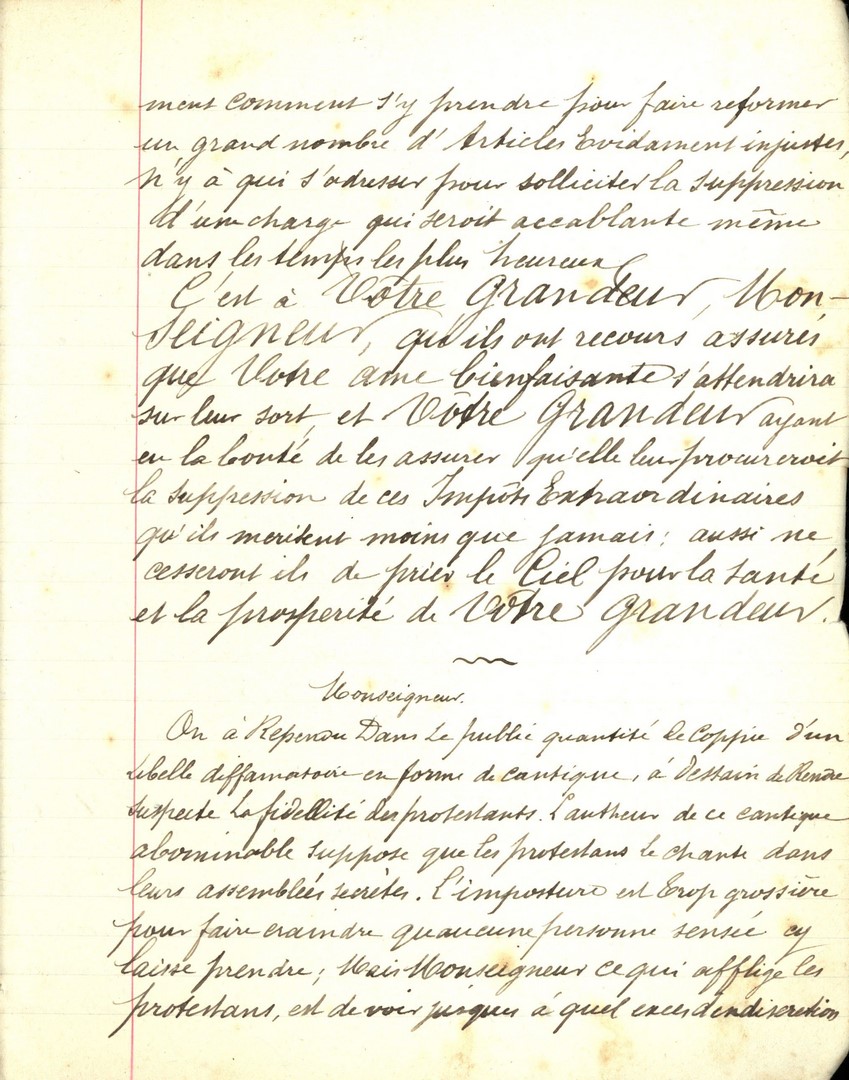 ment comment s'y prendre pour faire reformer
un grand nombre d'Articles Evidament injustes,
n'y à qui s'adresser pour solliciter la suppression
d'une charge qui seroit accablante même
dans les temps les plus heureux
C'est à Votre Grandeur, Mon-
seigneur, qu'ils ont recours assurés
que Votre âme bienfaisante s'attendrira
sur leur sort, et Vôtre Grandeur ayant
eu la bonté de les assurer qu'elle leur procureroit
la suppression de ces Impôts Extraordinaires
qu'ils meritent moins que jamais; aussi ne
cesseront ils de prier le Ciel pour la santé
et la prosperité de Vôtre Grandeur.
Monseigneur.
On à Rependu Dans Le public quantité de Coppie d'un
Libelle diffamatoire en forme de cantique, à Dessain de Rendre
suspecte La fidellité des protestants. L'autheur de ce cantique
abominable suppose que les protestans le chante dans
leurs assemblées secrètes. L'imposture est trop grossière
pour faire craindre qu'aucune personne sensée cy
laisse prendre; Mais Monseigneur ce qui afflige les
protestans, est de voir jusques à quel exces d'endiscretion